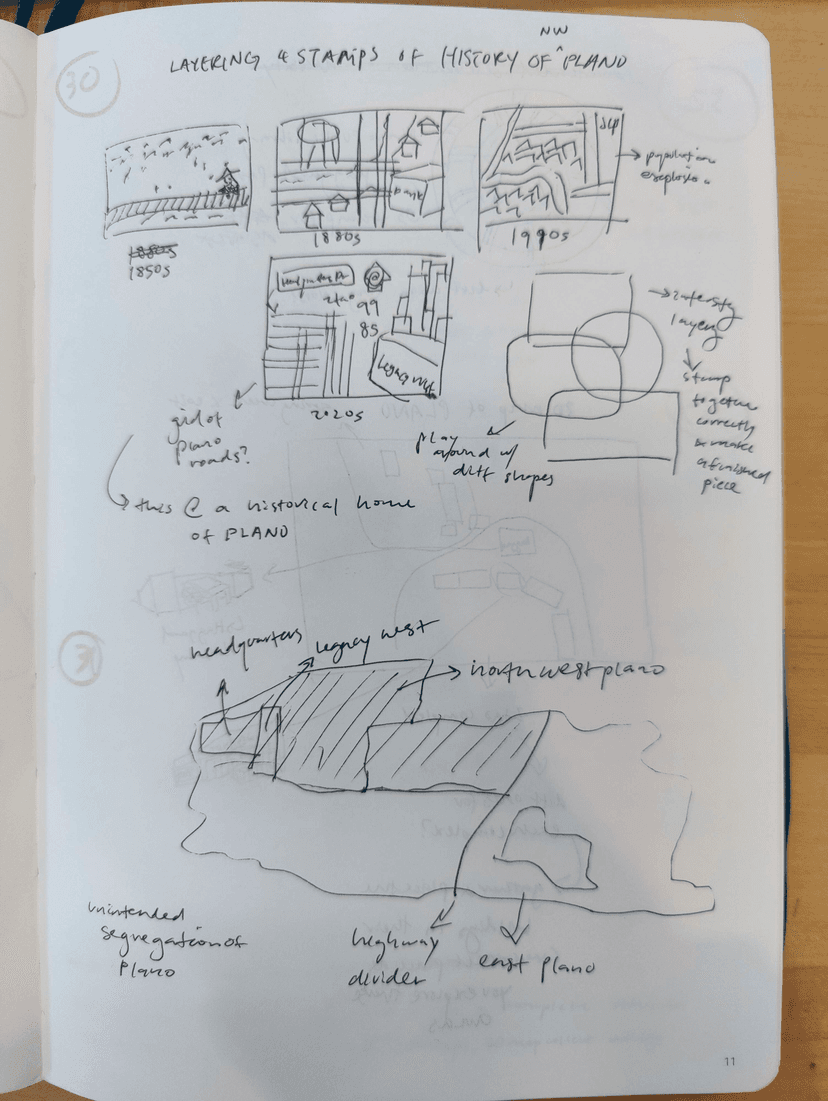 NW
LAYERING & STAMPS OF HISTORY OF ^ PLANO
30
1880s
1850s
Bank
1880s
1990s
→ population
explosion
99
85
Legacy West
2020s
grid of
plano
roads?
→ this @ a historical home
of PLANO
play
around w/
diff shapes
layers
stamp
together
correctly
to make
a finished
piece
headquarters
legacy west
northwest plano
unintended
segregation of
Plano
highway
divider
east plano
11